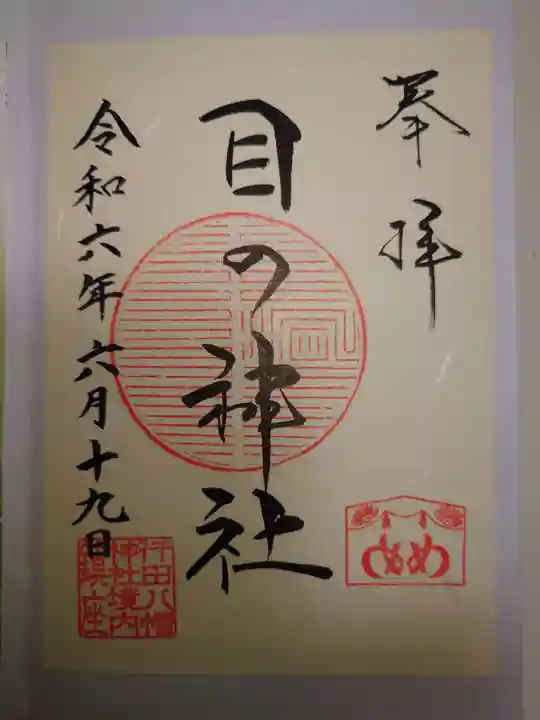 奉拝
目の神社
令和六年六月十九日
行田八幡
神社境内
鎮座
め